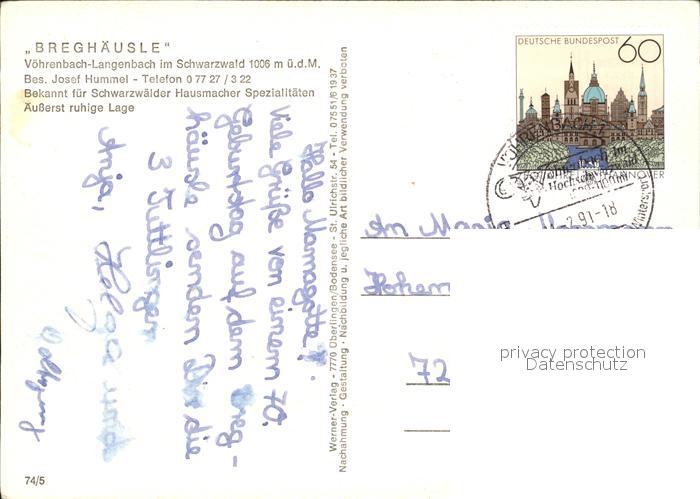 „BREGHÄUSLE"
Vöhrenbach-Langenbach im Schwarzwald 1006 m ü.d.M.
Bes. Josef Hummel - Telefon 0 77 27 / 3 22
Bekannt für Schwarzwälder Hausmacher Spezialitäten
Äußerst ruhige Lage
Hallo
Viele Grüße von einem 70.
Geburtstag auf dem Breg-
häusle senden Dir die
3 Tuttlinger
Anja, Holger und
Werner-Verlag - 7770 Überlingen/Bodensee - St. Ulrichstr. 54 - Tel. 07551/61937
Nachahmung - Gestaltung - Nachbildung u. jegliche Art bildlicher Verwendung verboten
DEUTSCHE BUNDESPOST 60
HANNOVER
VÖHRENBACH
Vöhrenbach im
Hochschwarzwald
2.91-18
Wintersport
An
Hohen
72
privacy protection
Datenschutz
74/5